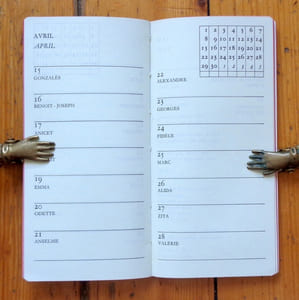 AVRIL
APRIL
15
GONZALÈS
16
BENOIT-JOSEPH
17
ANICET
19
EMMA
20
ODETTE
21
ANSELME
1 2 3 4 5 6 7
8 9 10 11 12 13 14
15 16 17 18 19 20 21
22 23 24 25 26 27 28
29 30 1 2 3 4 5
22
ALEXANDRE
23
GEORGES
24
FIDELE
25
MARC
26
ALIDA
27
ZITA
28
VALERIE